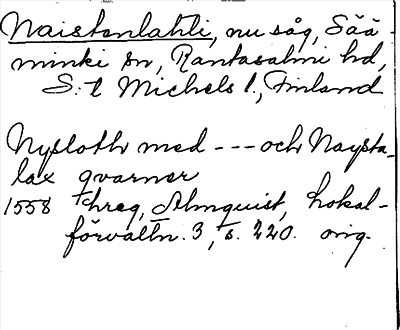 Naistenlahti, nu såg, Sää-
minki sn, Rantasalmi hd,
S:t Michels l., Finland
Nysloth med --- och Naysta-
lax qvarner
1558 threg, Almquist, Lokal-
förvaltn. 3, s. 220. orig.